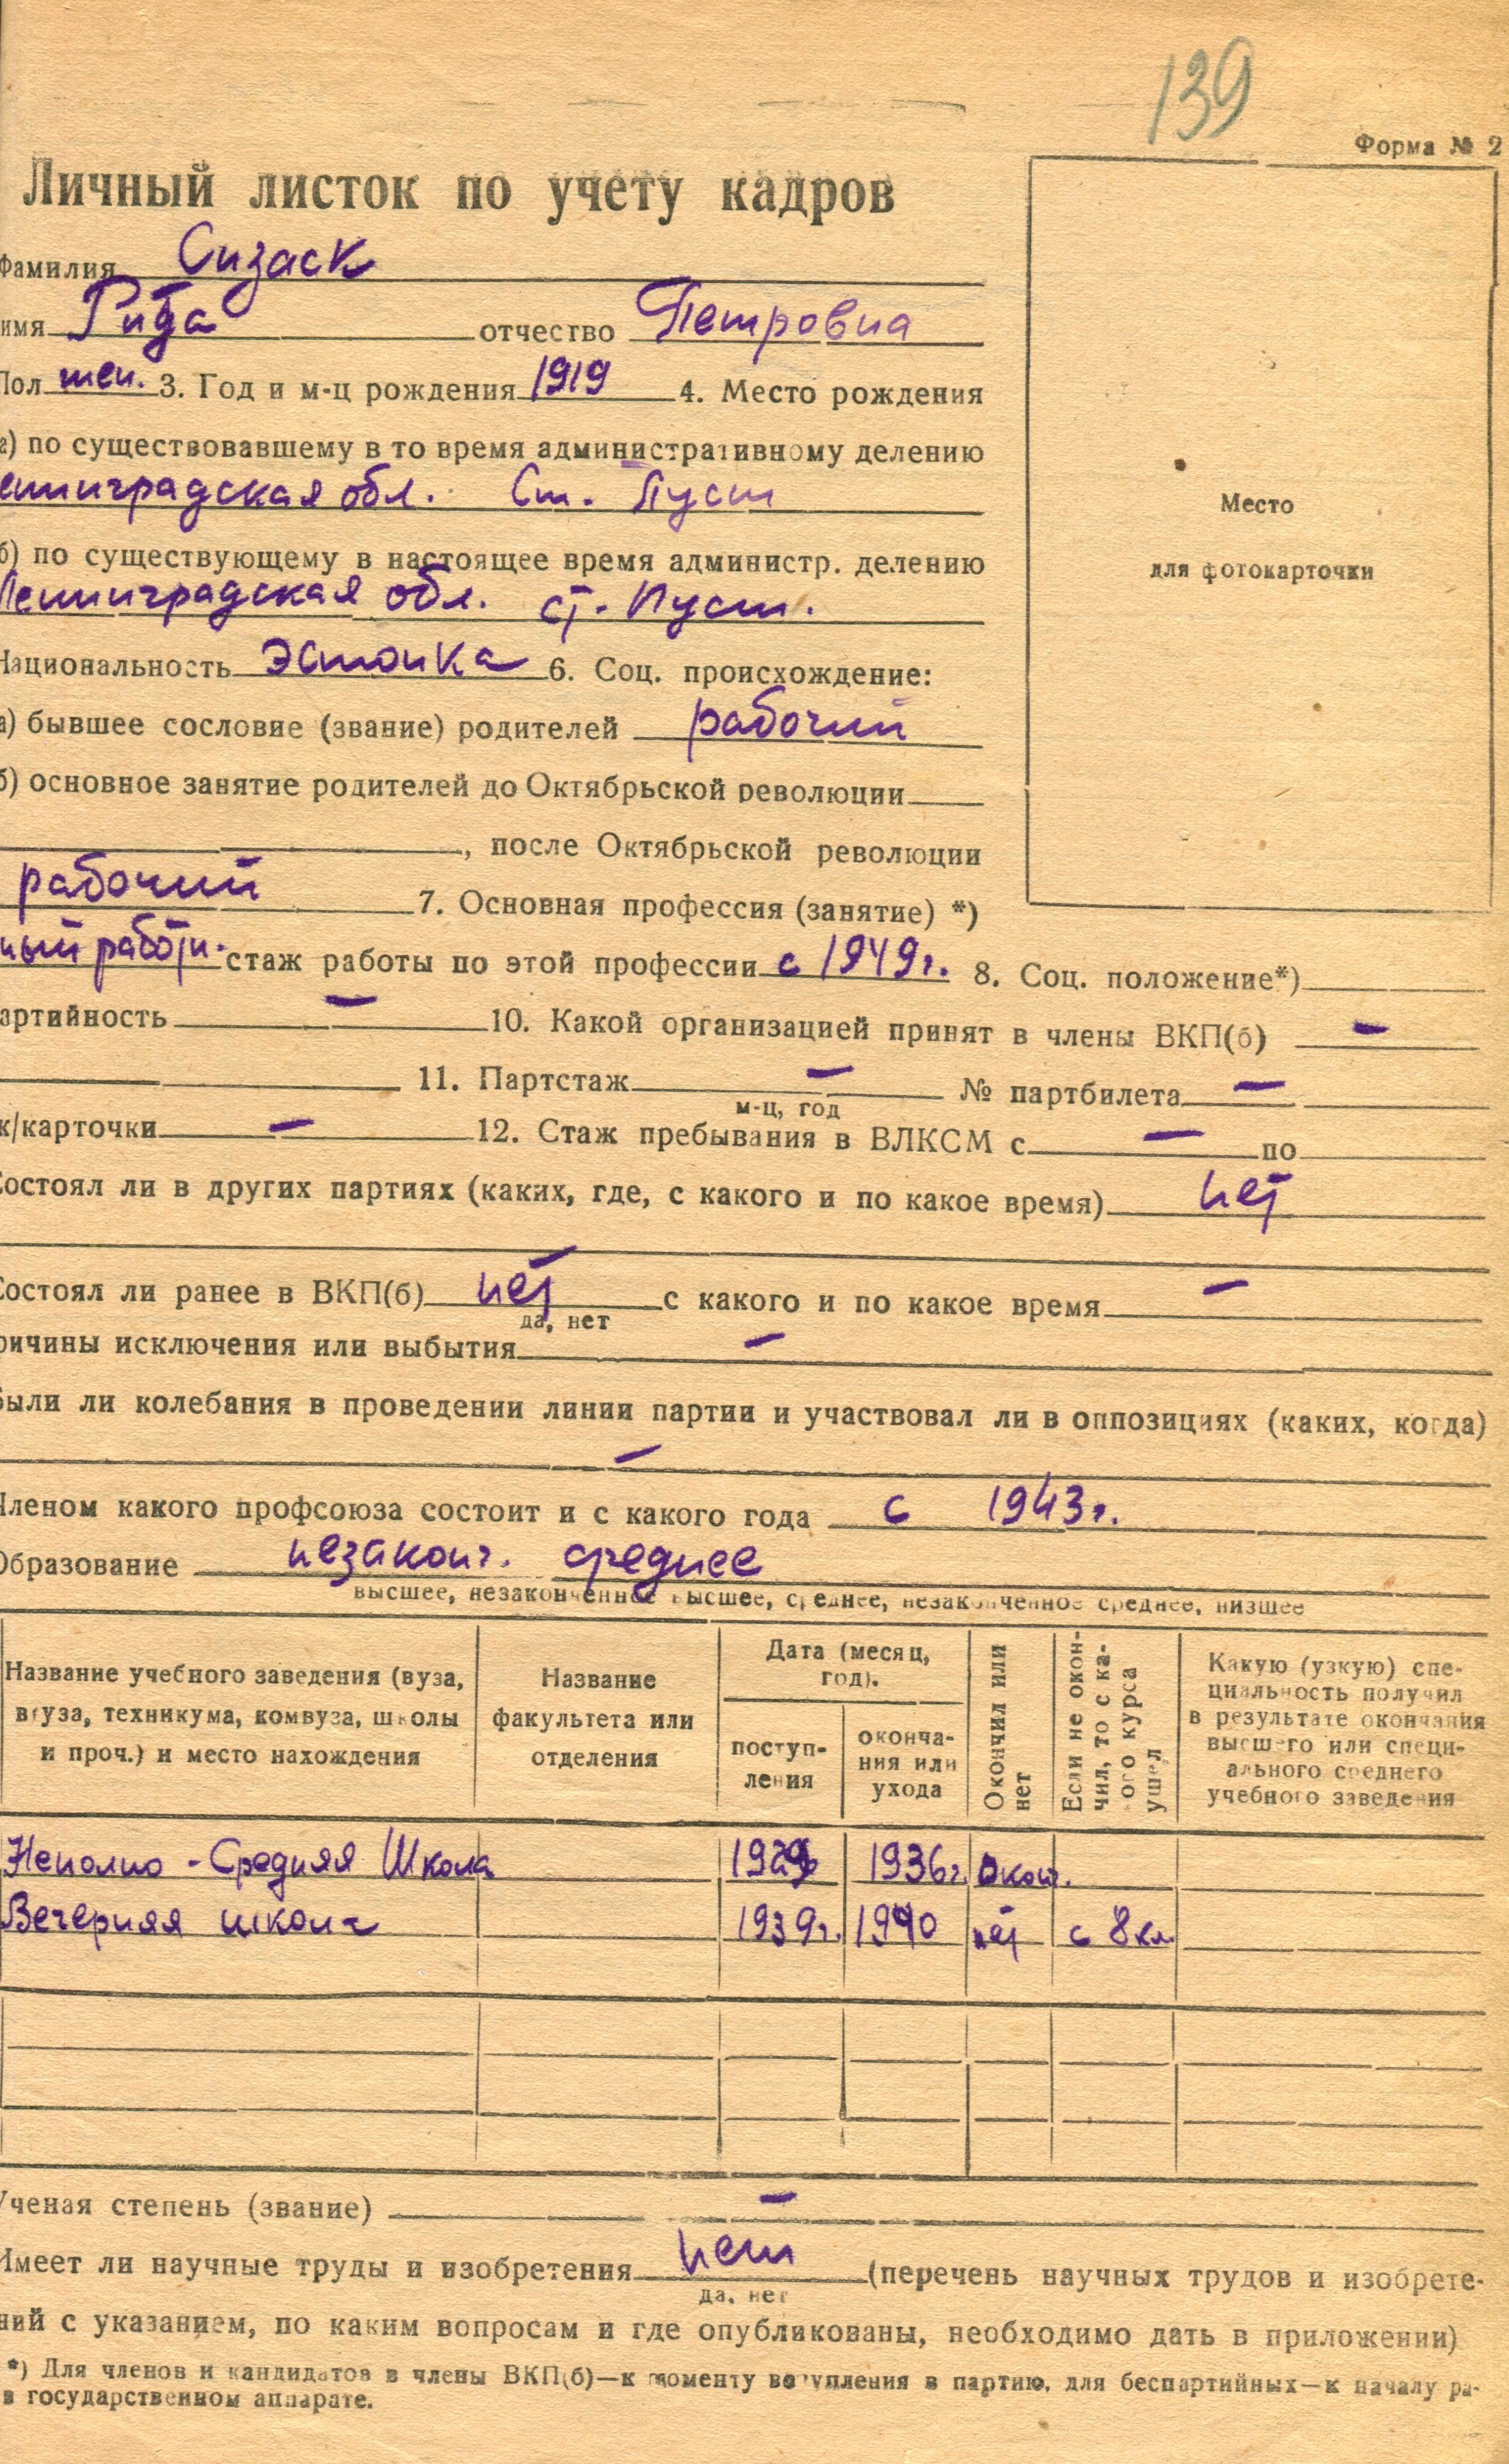 139
Форма № 2
Личный листок по учету кадров
Фамилия Сизаск
имя Рита отчество Петровна
Пол жен. 3. Год и м-ц рождения 1919 4. Место рождения
а) по существовавшему в то время административному делению
енинградская обл. Ст. Пуст
б) по существующему в настоящее время администр. делению
Ленинградская обл. ст. Пуст.
Национальность Эстонка 6. Соц. происхождение:
а) бывшее сословие (звание) родителей рабочий
б) основное занятие родителей до Октябрьской революции
, после Октябрьской революции
рабочий 7. Основная профессия (занятие) *)
ный работн. стаж работы по этой профессии с 1949 г. 8. Соц. положение*)
артийность — 10. Какой организацией принят в члены ВКП(б) —
11. Партстаж — № партбилета —
м-ц, год
к/карточки — 12. Стаж пребывания в ВЛКСМ с — по
Состоял ли в других партиях (каких, где, с какого и по какое время) нет
Состоял ли ранее в ВКП(б) нет с какого и по какое время —
да, нет
ричины исключения или выбытия —
были ли колебания в проведении линии партии и участвовал ли в оппозициях (каких, когда)
—
Членом какого профсоюза состоит и с какого года с 1943 г.
Образование незаконч. среднее
высшее, незаконченное высшее, среднее, незаконченное среднее, низшее
Название учебного заведения (вуза, втуза, техникума, комвуза, школы и проч.) и место нахождения
Название факультета или отделения
Дата (месяц, год).
поступления
окончания или ухода
Окончил или нет
Если не окончил, то с какого курса ушел
Какую (узкую) специальность получил в результате окончания высшего или специального среднего учебного заведения
Неполно - Средняя Школа 1936 г. окон.
Вечерняя 1939 г. 1940 нет с 8 кл.
Ученая степень (звание) —
Имеет ли научные труды и изобретения нет (перечень научных трудов и изобрете-
да, нет
ний с указанием, по каким вопросам и где опубликованы, необходимо дать в приложении)
*) Для членов и кандидатов в члены ВКП(б)—к моменту вступления в партию, для беспартийных—к началу ра-
в государственном аппарате.